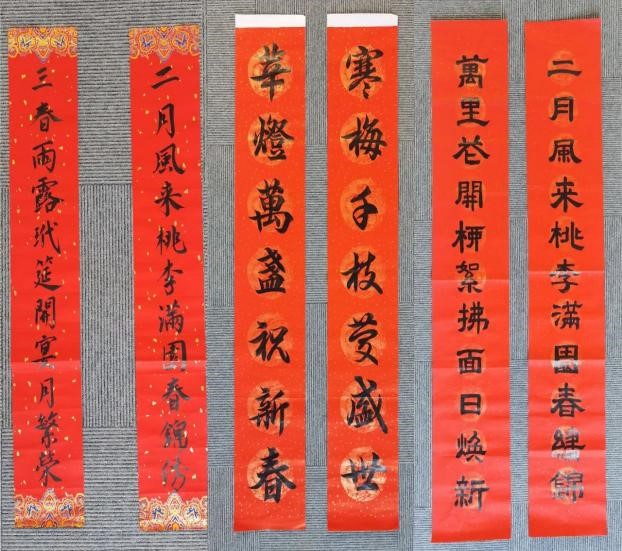 二月風来桃李滿園春繡錦
萬里花開柳絮拂面日焕新
寒梅千枝慶盛世
華燈萬盞祝新春
二月風来桃李滿園春錦绣
三春雨露玳筵開宴月繁榮